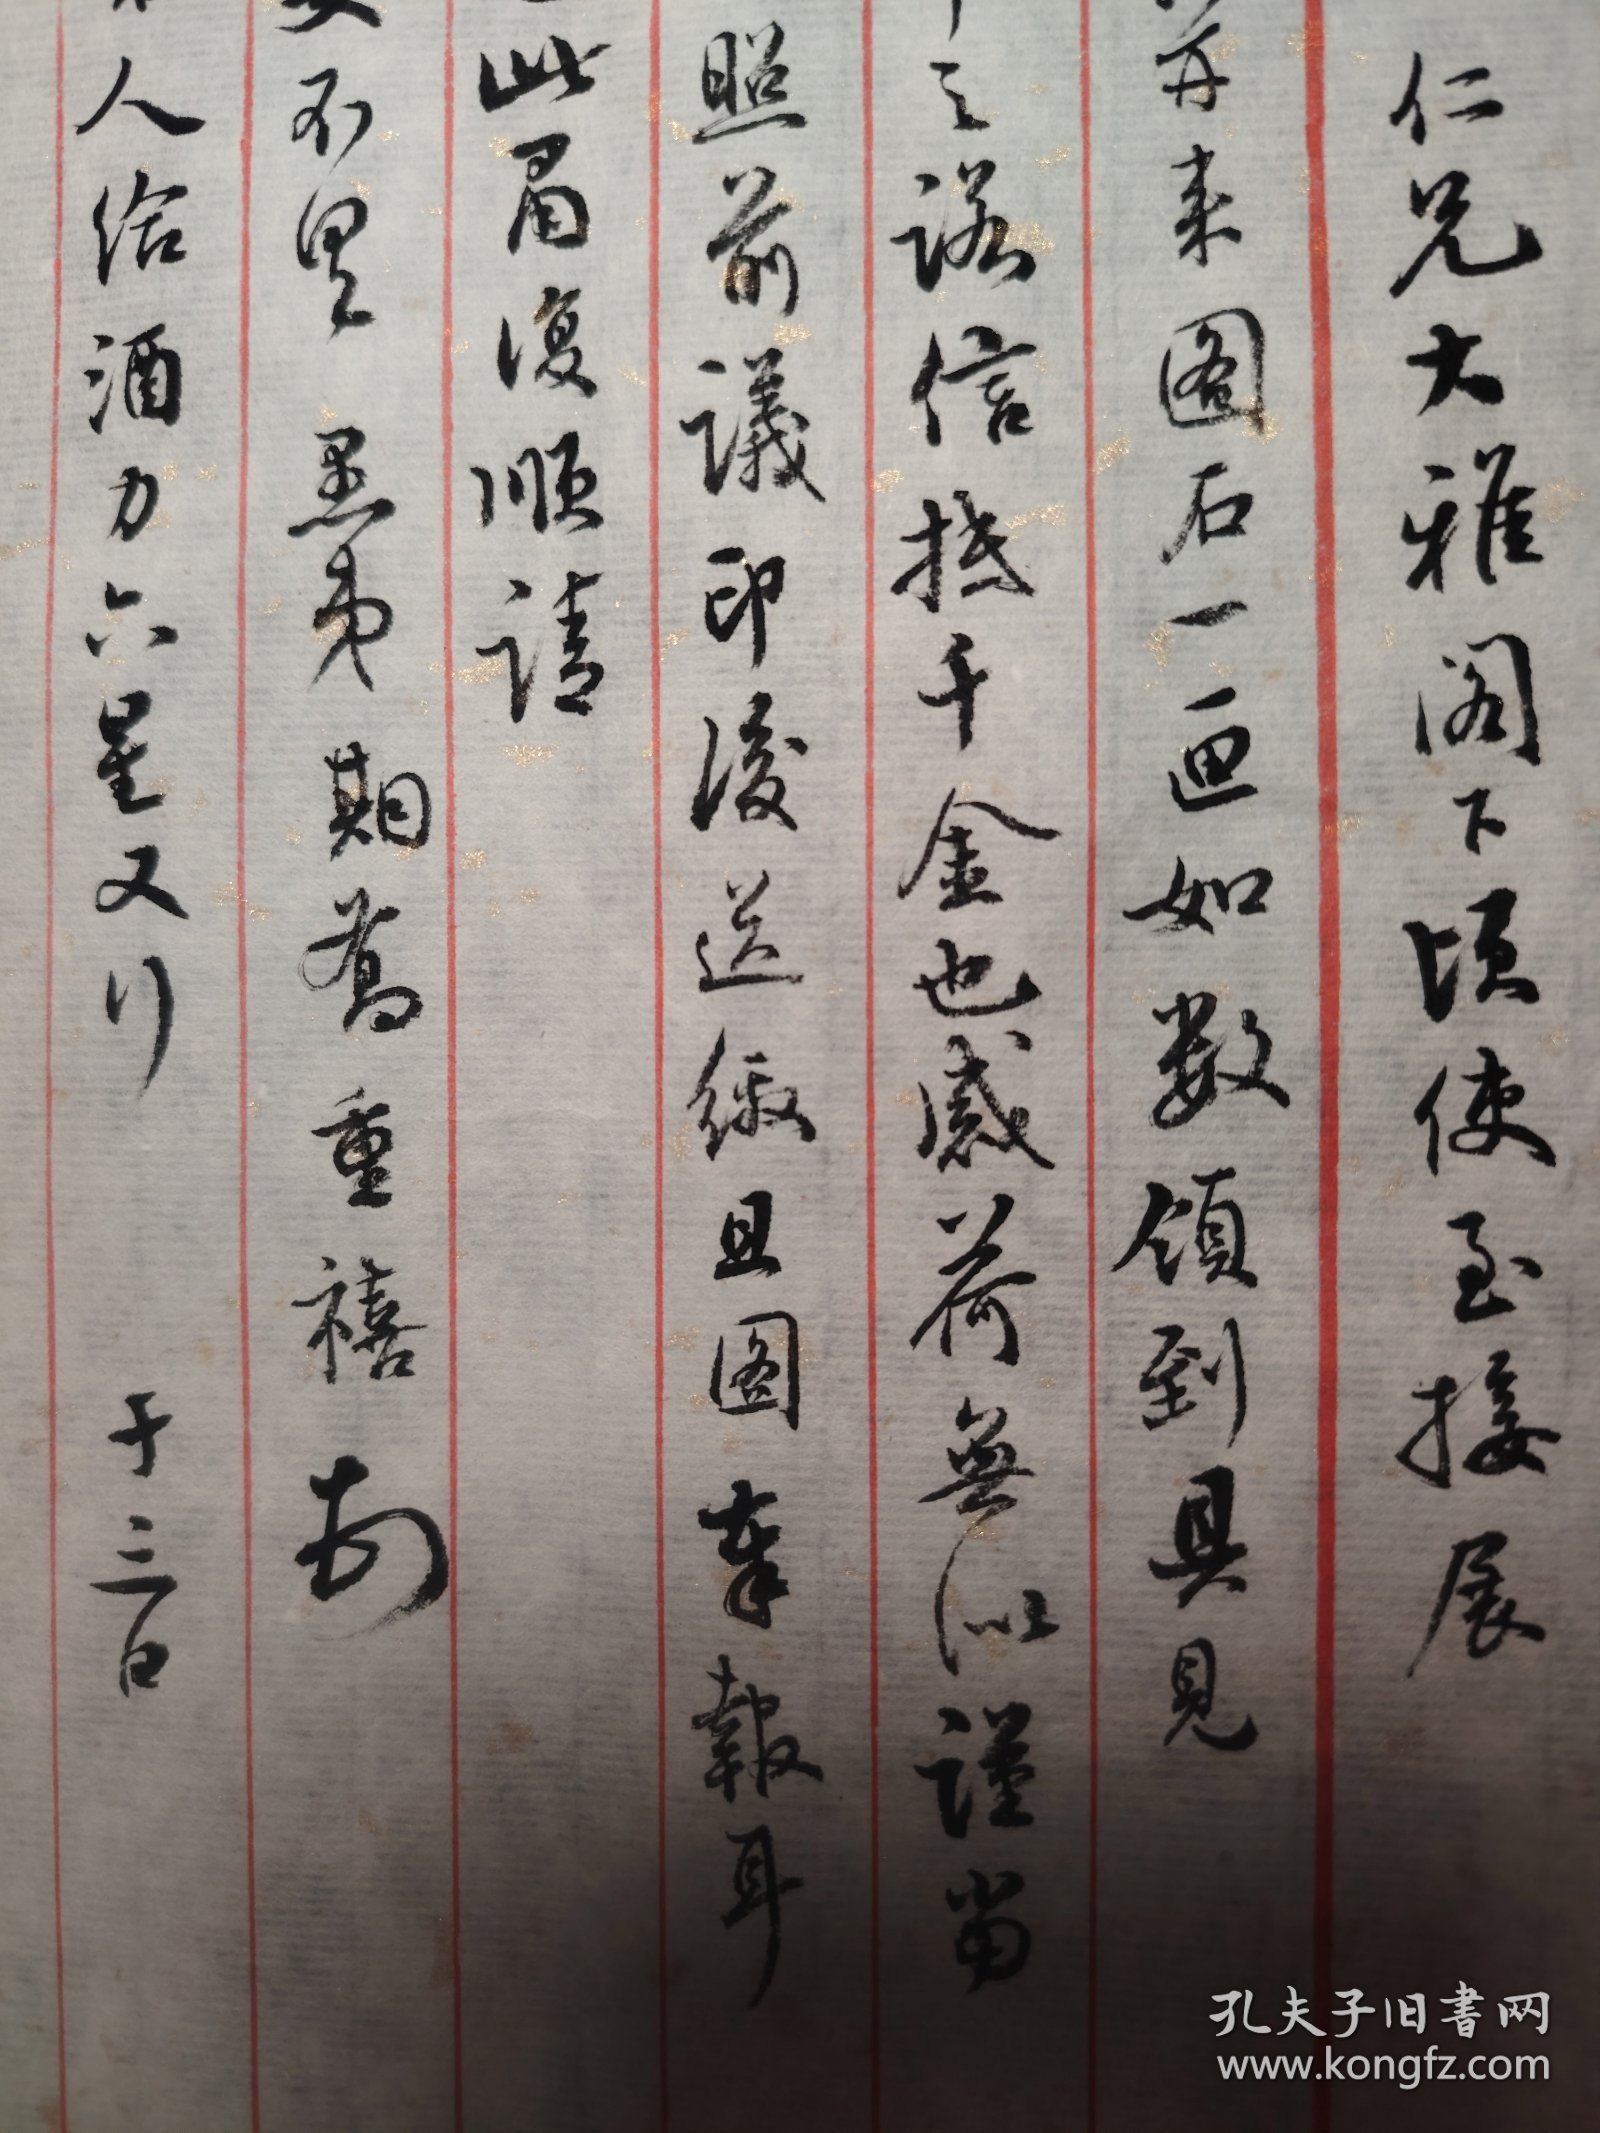 仁兄大雅阁下頃使至接展
并来图石一画如数領到具見
之諾信抵千金也感荷無似謹當
照前議印後送繳且图奉報耳
此肅復順請
不畧 愚弟期喬重禧
人给酒力六星又行 十三日
孔夫子旧書网
www.kongfz.com